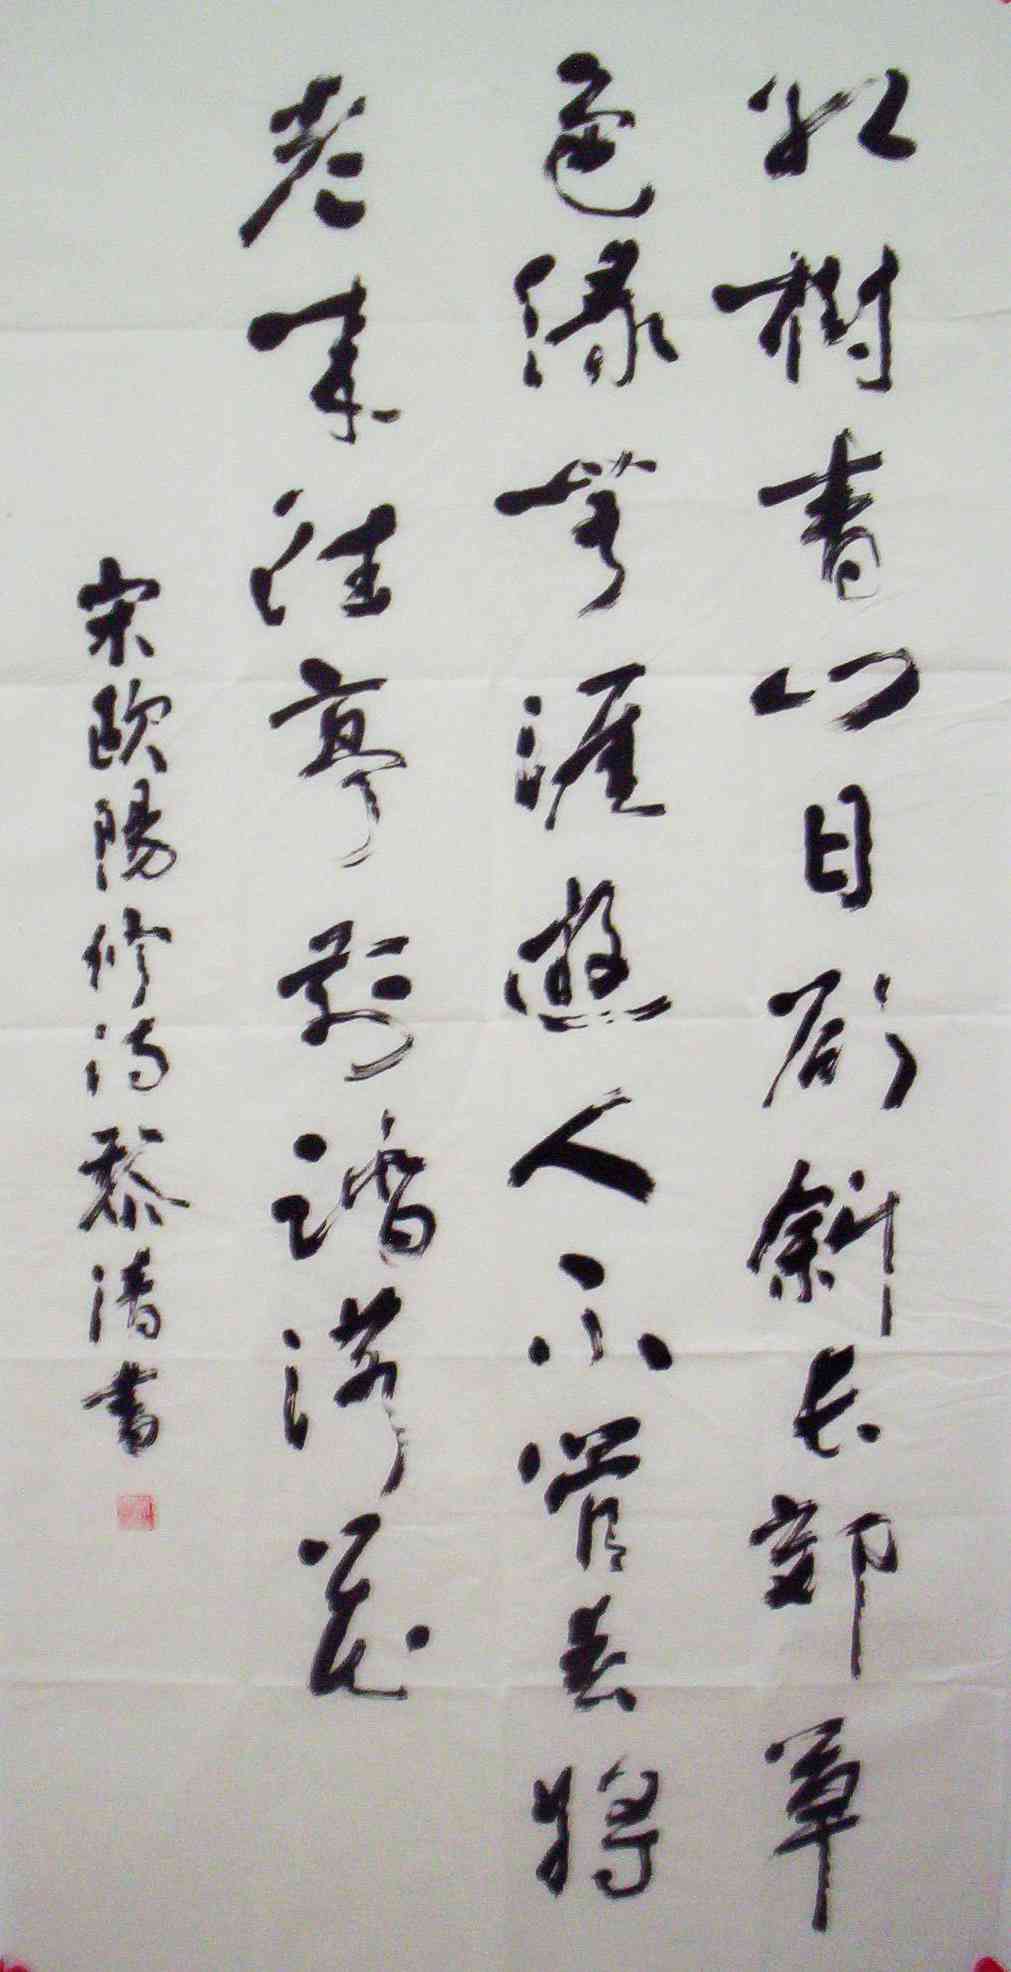 紅樹青山日欲斜長郊草
色綠無涯遊人不管春將
老來往亭前踏落花
宋歐陽修詩黎清書